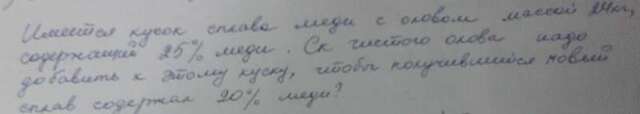 Имеется кусок сплава меди с оловом массой 24кг,
содержащий 25% меди. Ск чистого олова надо
добавить к этому куску, чтобы получившийся новый
сплав содержал 20% меди?